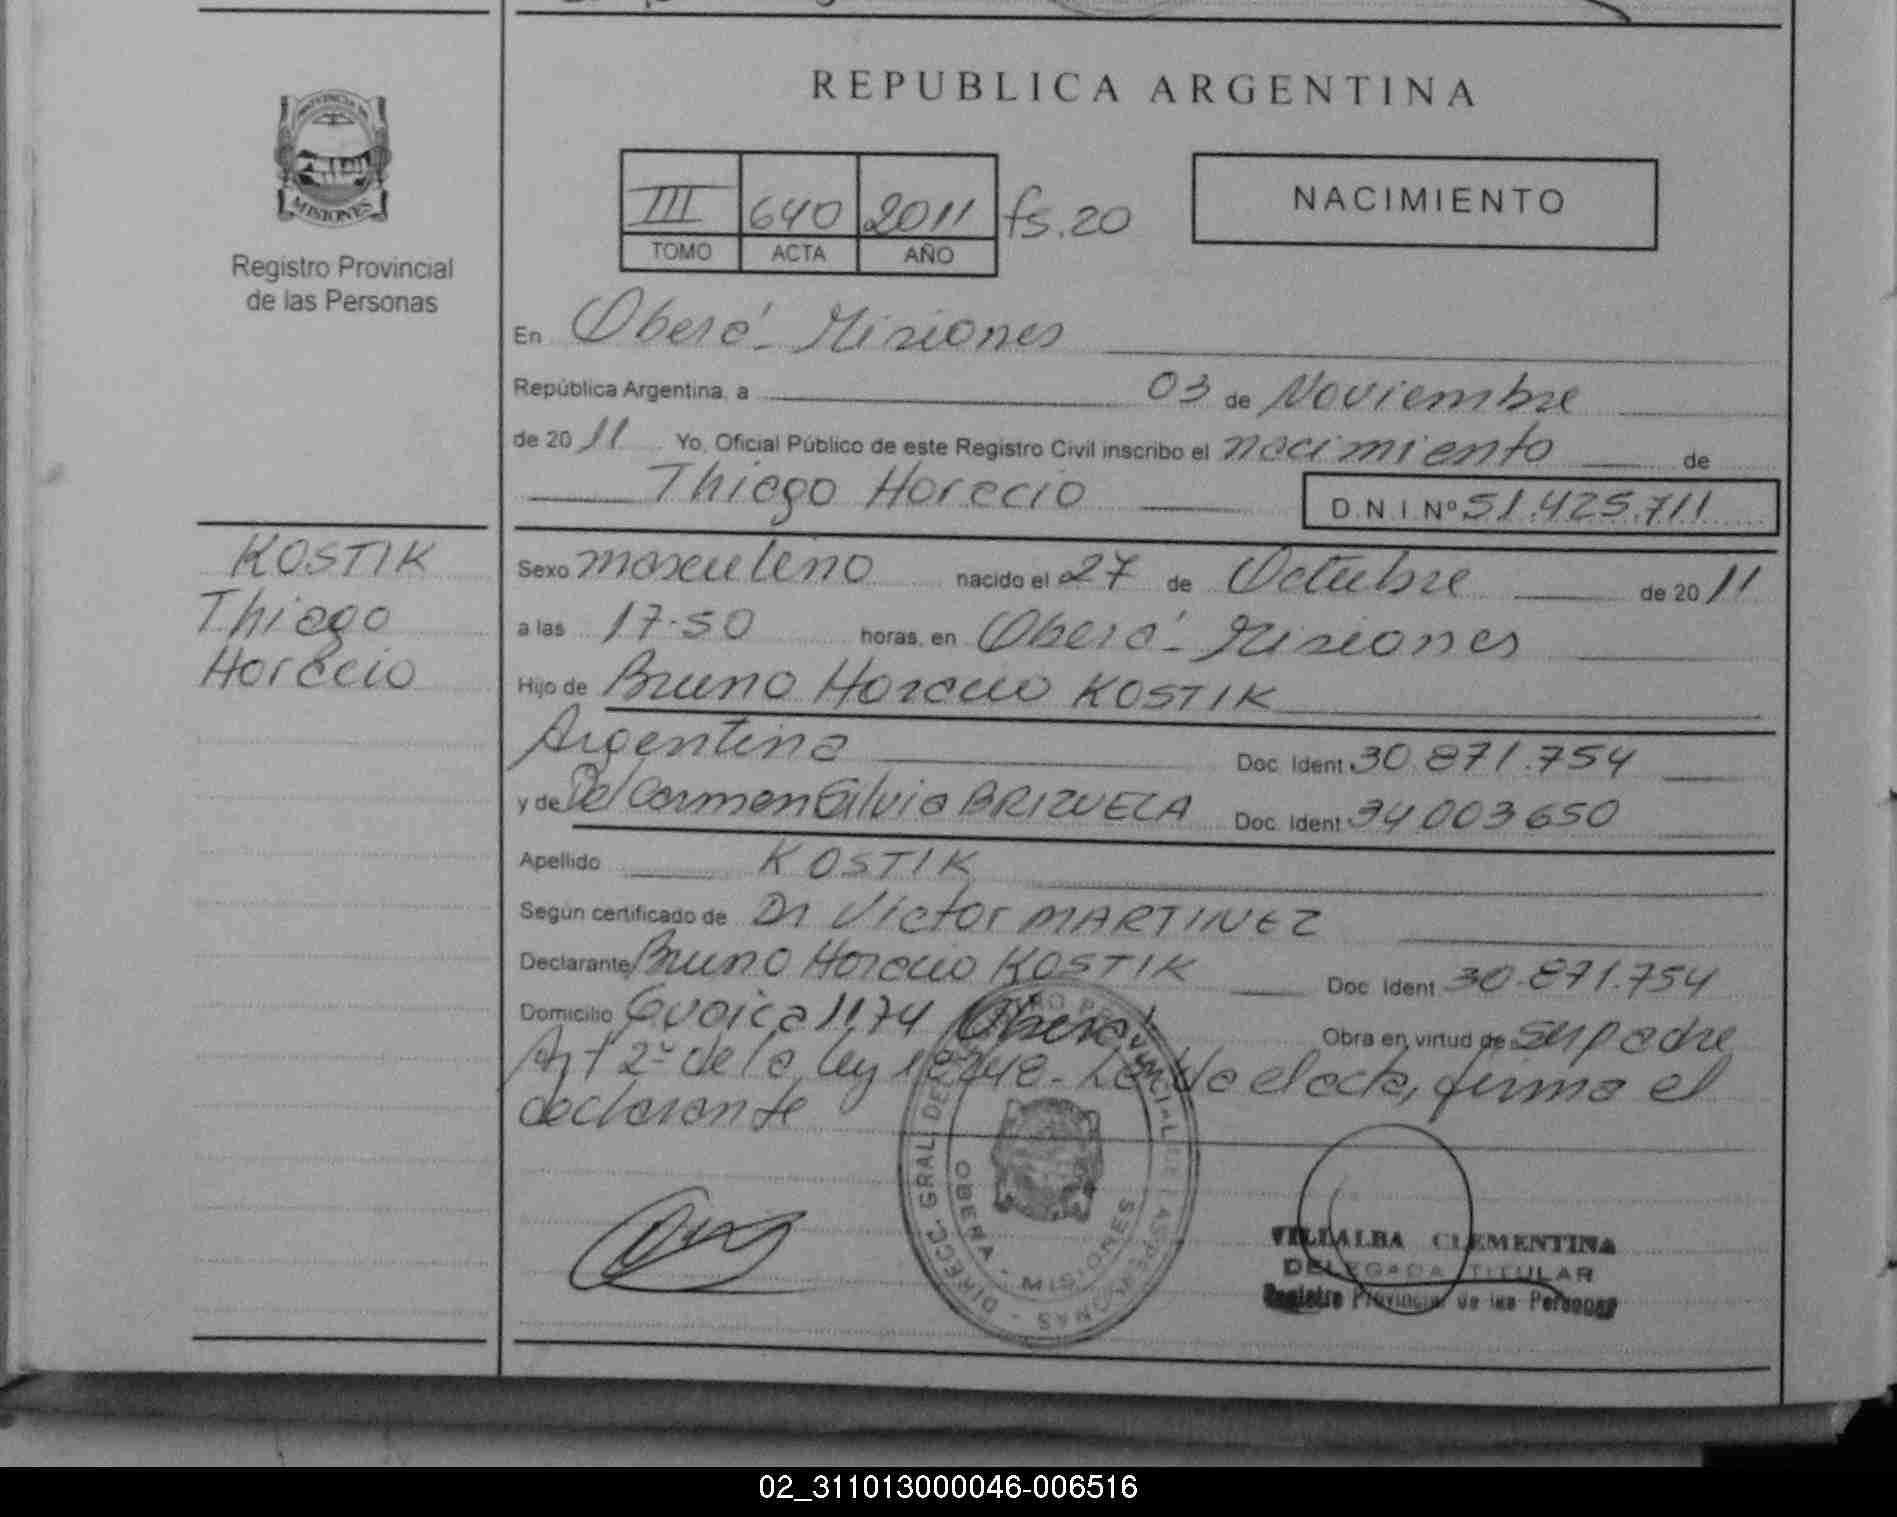 REPUBLICA ARGENTINA
PROVINCIA DE
MISIONES
Registro Provincial
de las Personas
III 640 2011 fs.20
TOMO ACTA AÑO
NACIMIENTO
En Oberá - Misiones
República Argentina, a 03 de Noviembre
de 2011 Yo, Oficial Público de este Registro Civil inscribo el nacimiento de
Thiago Horacio D.N.I.Nº 51.425.711
KOSTIK
Thiago
Horacio
Sexo masculino nacido el 27 de Octubre de 2011
a las 17.50 horas, en Oberá - Misiones
Hijo de Bruno Horacio KOSTIK
Argentina Doc. Ident. 30.871.754
y de Del Carmen Silvia BRIZUELA Doc. Ident. 34.003.650
Apellido KOSTIK
Según certificado de Dr Victor MARTINEZ
Declarante Bruno Horacio KOSTIK Doc. Ident. 30.871.754
Domicilio 1174 Oberá Obra en virtud de su padre
Art 2º de la ley Leída el acta, firma el
declarante
DIRECC. GRAL. DEL REGISTRO PROVINCIAL DE LAS PERSONAS
OBERA - MISIONES
VILLALBA CLEMENTINA
DELEGADA TITULAR
Registro Provincial de las Personas
02_311013000046-006516